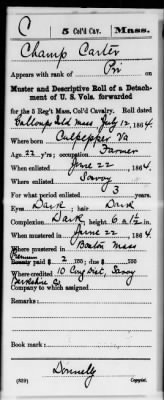 C 5 Col'd Cav. Mass.
Champ Carter
Appears with rank of Pri on
Muster and Descriptive Roll of a Detach-
ment of U. S. Vols. forwarded
for the 5 Reg't Mass. Col'd Cavalry. Roll dated
Gallops Isld Mass July 12, 1864.
Where born Culpepper Va
Age 22 y'rs; occupation Farmer
When enlisted June 22, 1864.
Where enlisted Savoy
For what period enlisted 3 years.
Eyes Dark; hair Dark
Complexion Dark; height 6 ft. 1½ in.
When mustered in June 22, 1864.
Where mustered in Boston Mass
Bounty paid $ 2/100; due $ /100
Where credited 10 Cong Dist, Savoy
Berkshire Co
Company to which assigned
Remarks:
Book mark:
Donnelly
(339) Copyist.